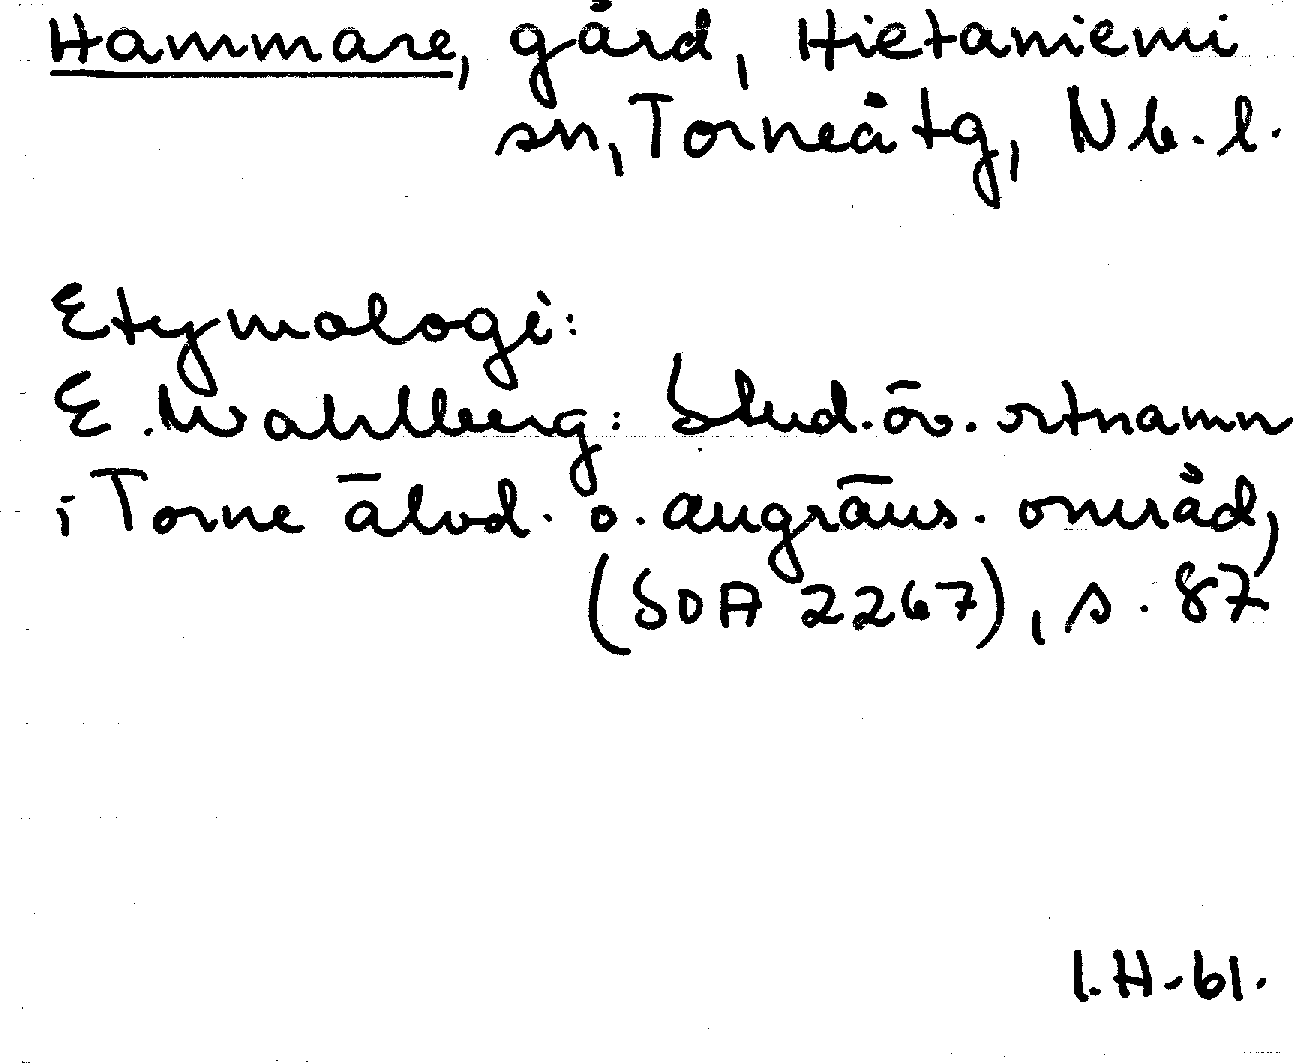 Hammare, gård, Hietaniemi
sn, Torneå tg, Nb. l.
Etymologi:
E. Wahlberg: Stud. öv. ortnamn
i Torne älvd. o. angräns. område,
(SOA 2267), s. 87
I.H-61.